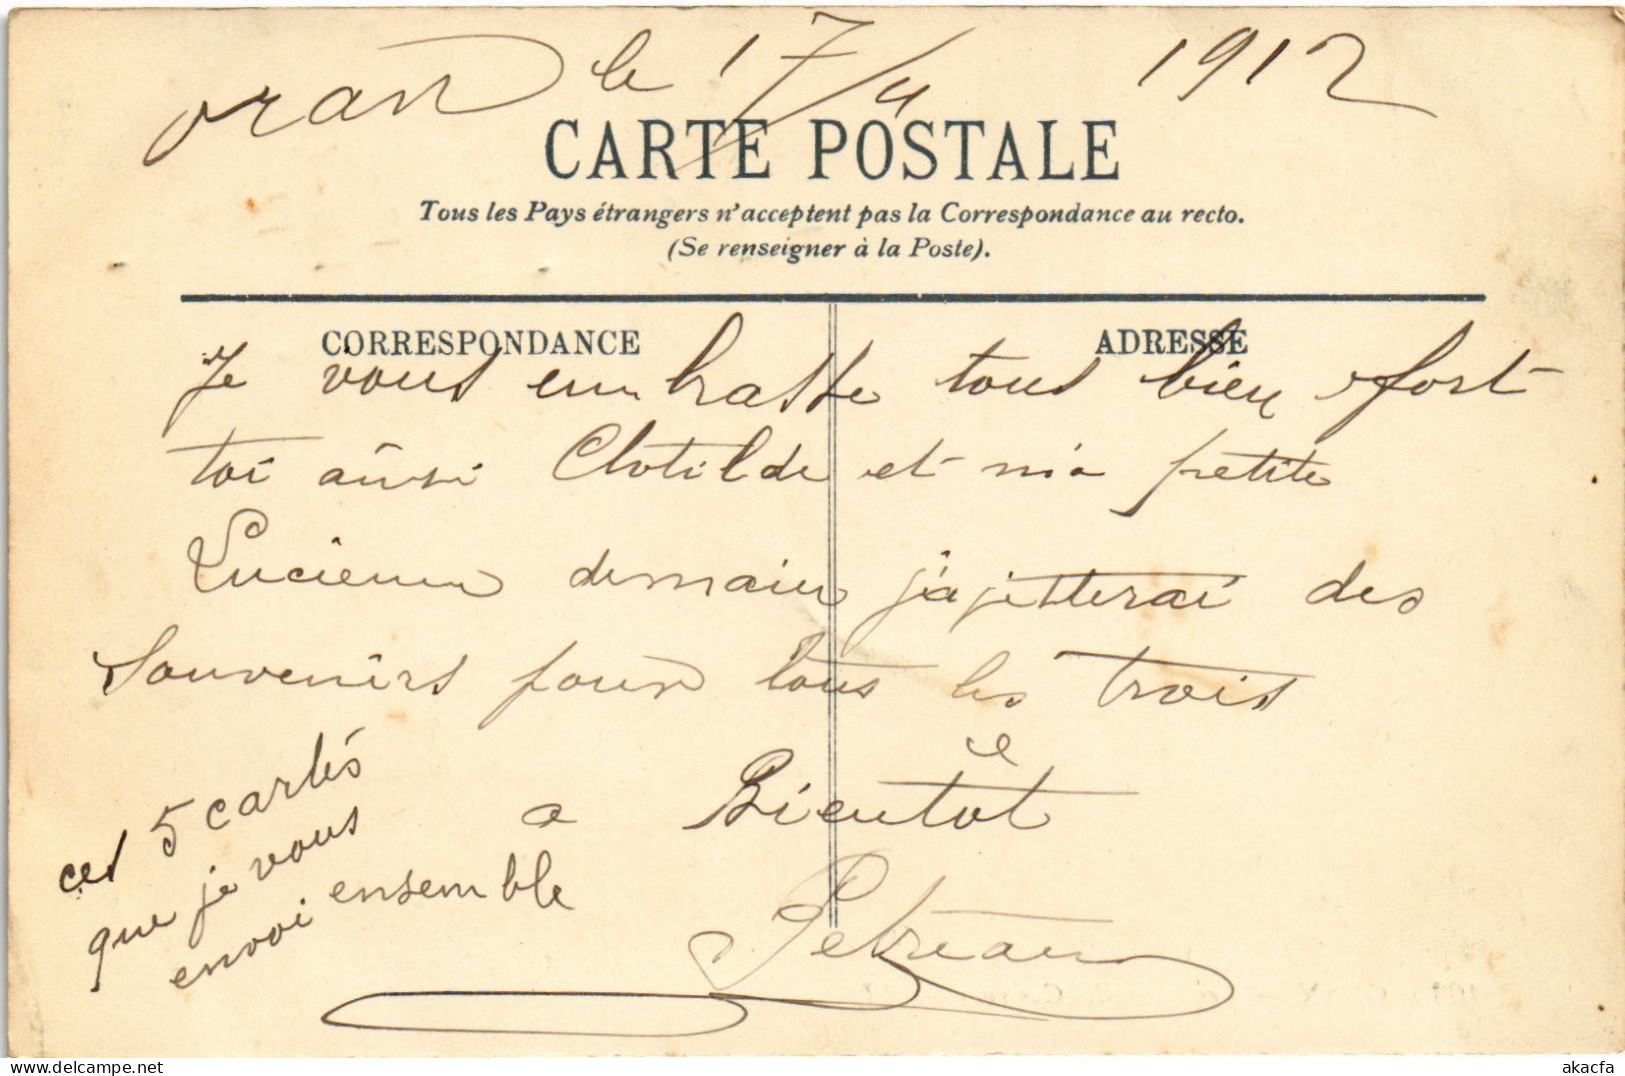 oran le 17/4 1912
CARTE POSTALE
Tous les Pays étrangers n'acceptent pas la Correspondance au recto.
(Se renseigner à la Poste).
CORRESPONDANCE
ADRESSE
Je vous embrasse tous bien fort
toi ainsi Clotilde et ma petite
Lucienne demain j'ajetterai des
Souvenirs pour tous les trois
a Bientôt
ces 5 cartés
que je vous
envoi ensemble
akacfa
delcampe.net